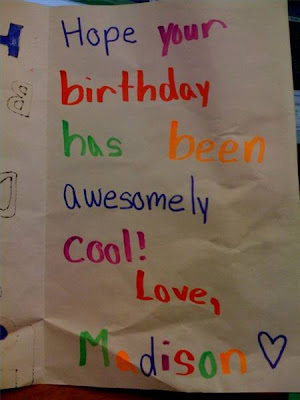 Hope your
birthday
has been
awesomely
cool!
Love,
Madison